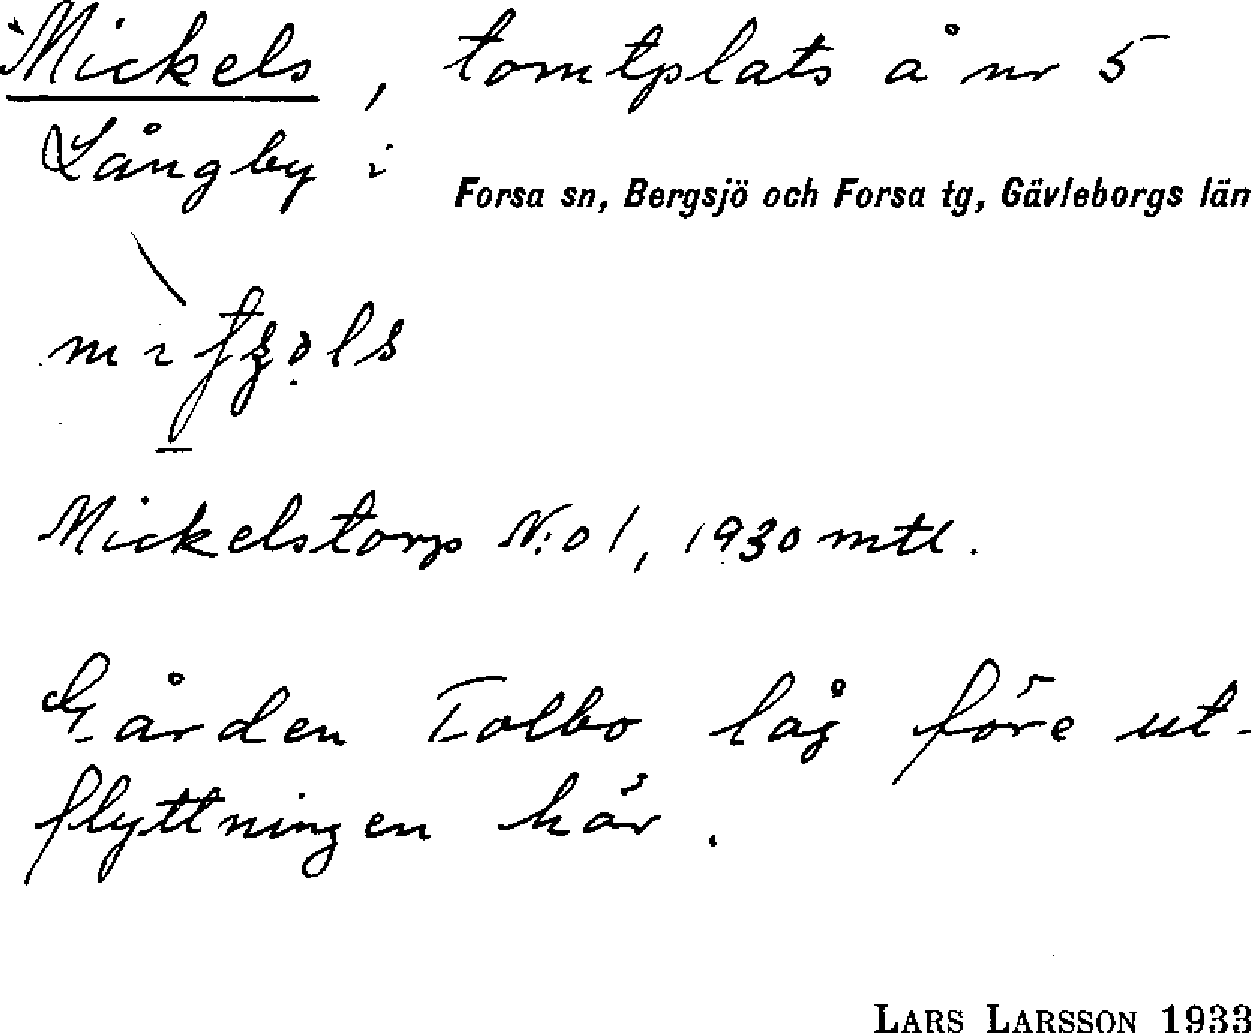 Mickels, tomtplats å nr 5
Långby i Forsa sn, Bergsjö och Forsa tg, Gävleborgs län
Mickelstorp N:o 1, 1930 mtl.
Gården Tolbo låg före ut-
flyttningen här.
LARS LARSSON 1933